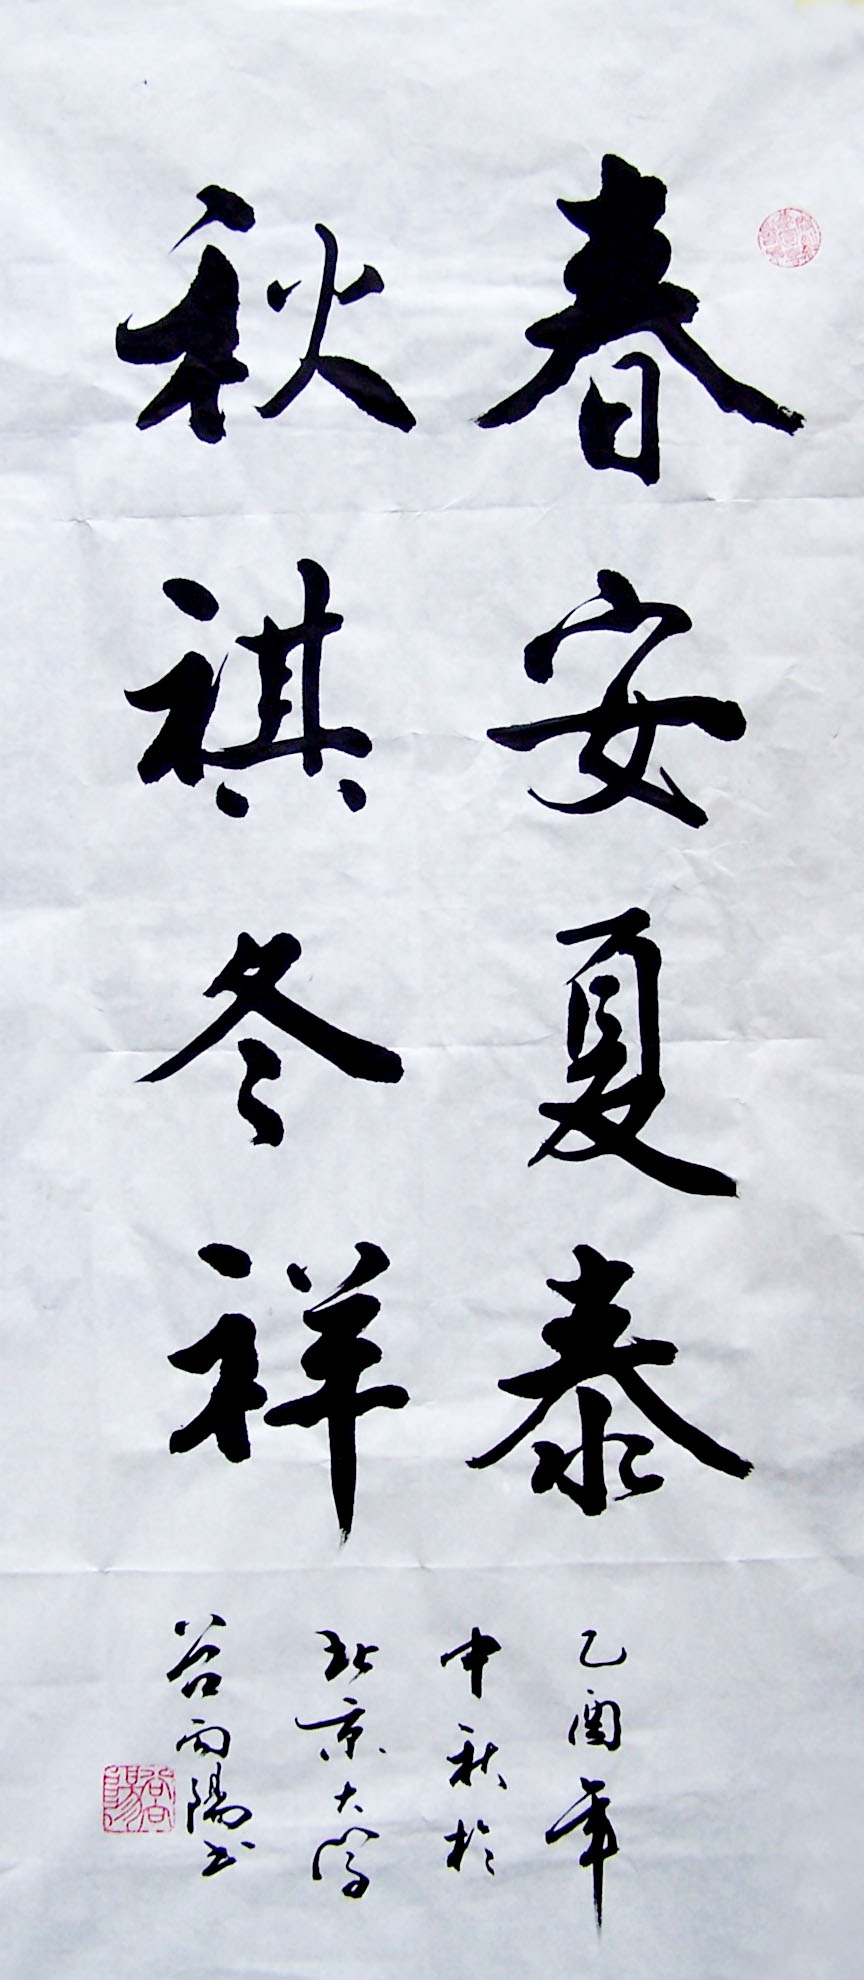 春安夏泰
秋祺冬祥
乙酉年
中秋於
北京大学
谷向陽书